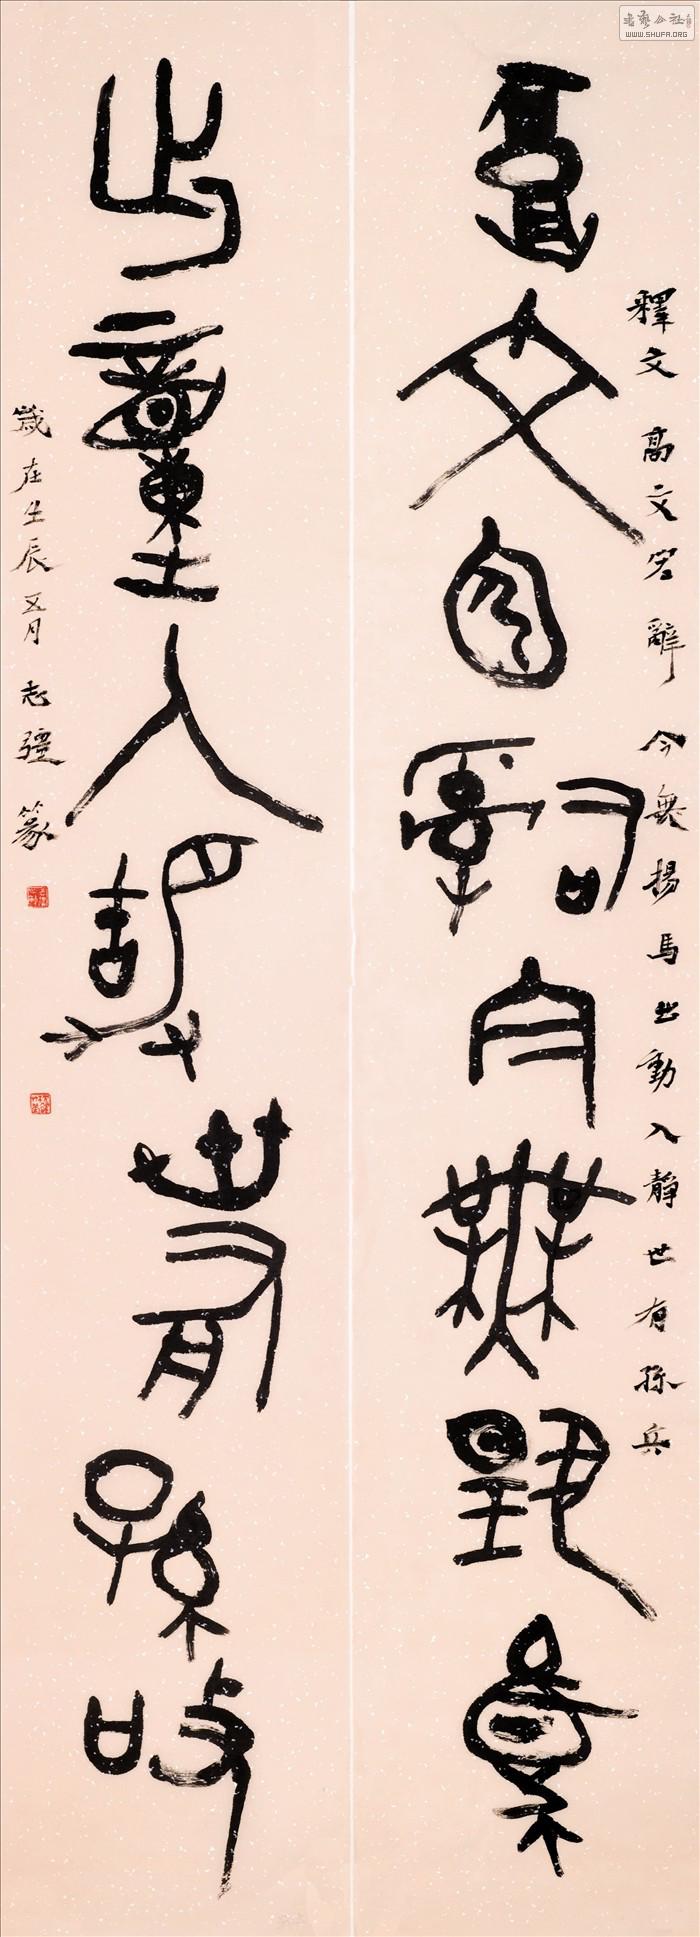 書藝公社
WWW.SHUFA.ORG
釋文 高文宏辭 今無揚馬出動入靜世有孫兵
高文宏辭今無揚馬
出動入靜世有孫兵
歲在壬辰五月 志彊篆